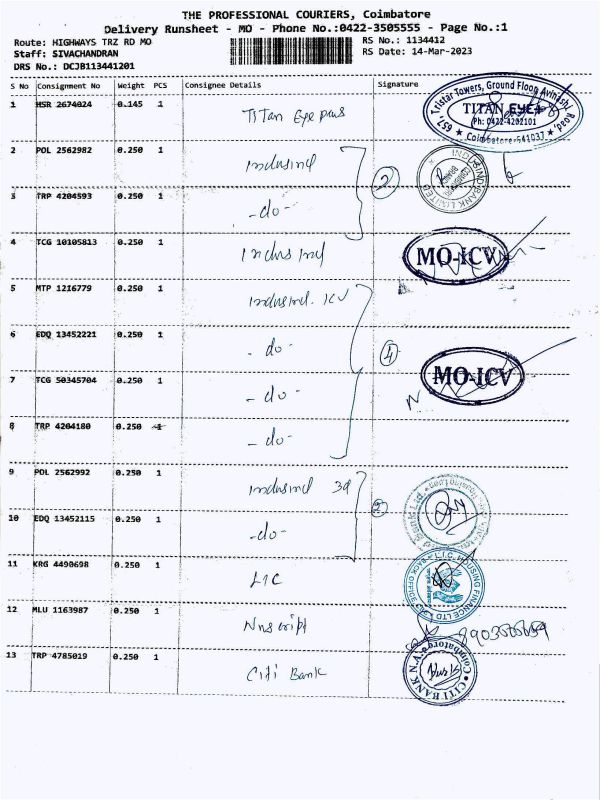 THE PROFESSIONAL COURIERS, Coimbatore
Delivery Runsheet - MO - Phone No.:0422-3505555 - Page No.:1
Route: HIGHWAYS TRZ RD MO RS No.: 1134412
Staff: SIVACHANDRAN RS Date: 14-Mar-2023
DRS No.: DCJB113441201
S No Consignment No Weight PCS Consignee Details Signature
1 HSR 2674024 0.145 1 Titan Eye plus
657, Tristar Towers, Ground Floor, Avinashi Road,
TITAN EYE+
Ph: 0422-4202101
Coimbatore-641037
2 POL 2562982 0.250 1 Indusind
2
INDUSIND BANK LIMITED
3 TRP 4204593 0.250 1 -do-
4 TCG 10105813 0.250 1 Indusind
MO-ICV
5 MTP 1216779 0.250 1 Indusind. ICV
6 EDQ 13452221 0.250 1 -do-
4
MO-ICV
7 TCG 50345704 0.250 1 -do-
8 TRP 4204180 0.250 1 -do-
9 POL 2562992 0.250 1 Indusind
2
10 EDQ 13452115 0.250 1 -do-
11 KRG 4490698 0.250 1 LIC
L.I.C. HOUSING FINANCE LTD
BACK OFFICE
12 MLU 1163987 0.250 1
13 TRP 4785019 0.250 1 Citi Bank
CITI BANK N.A.
Coimbatore